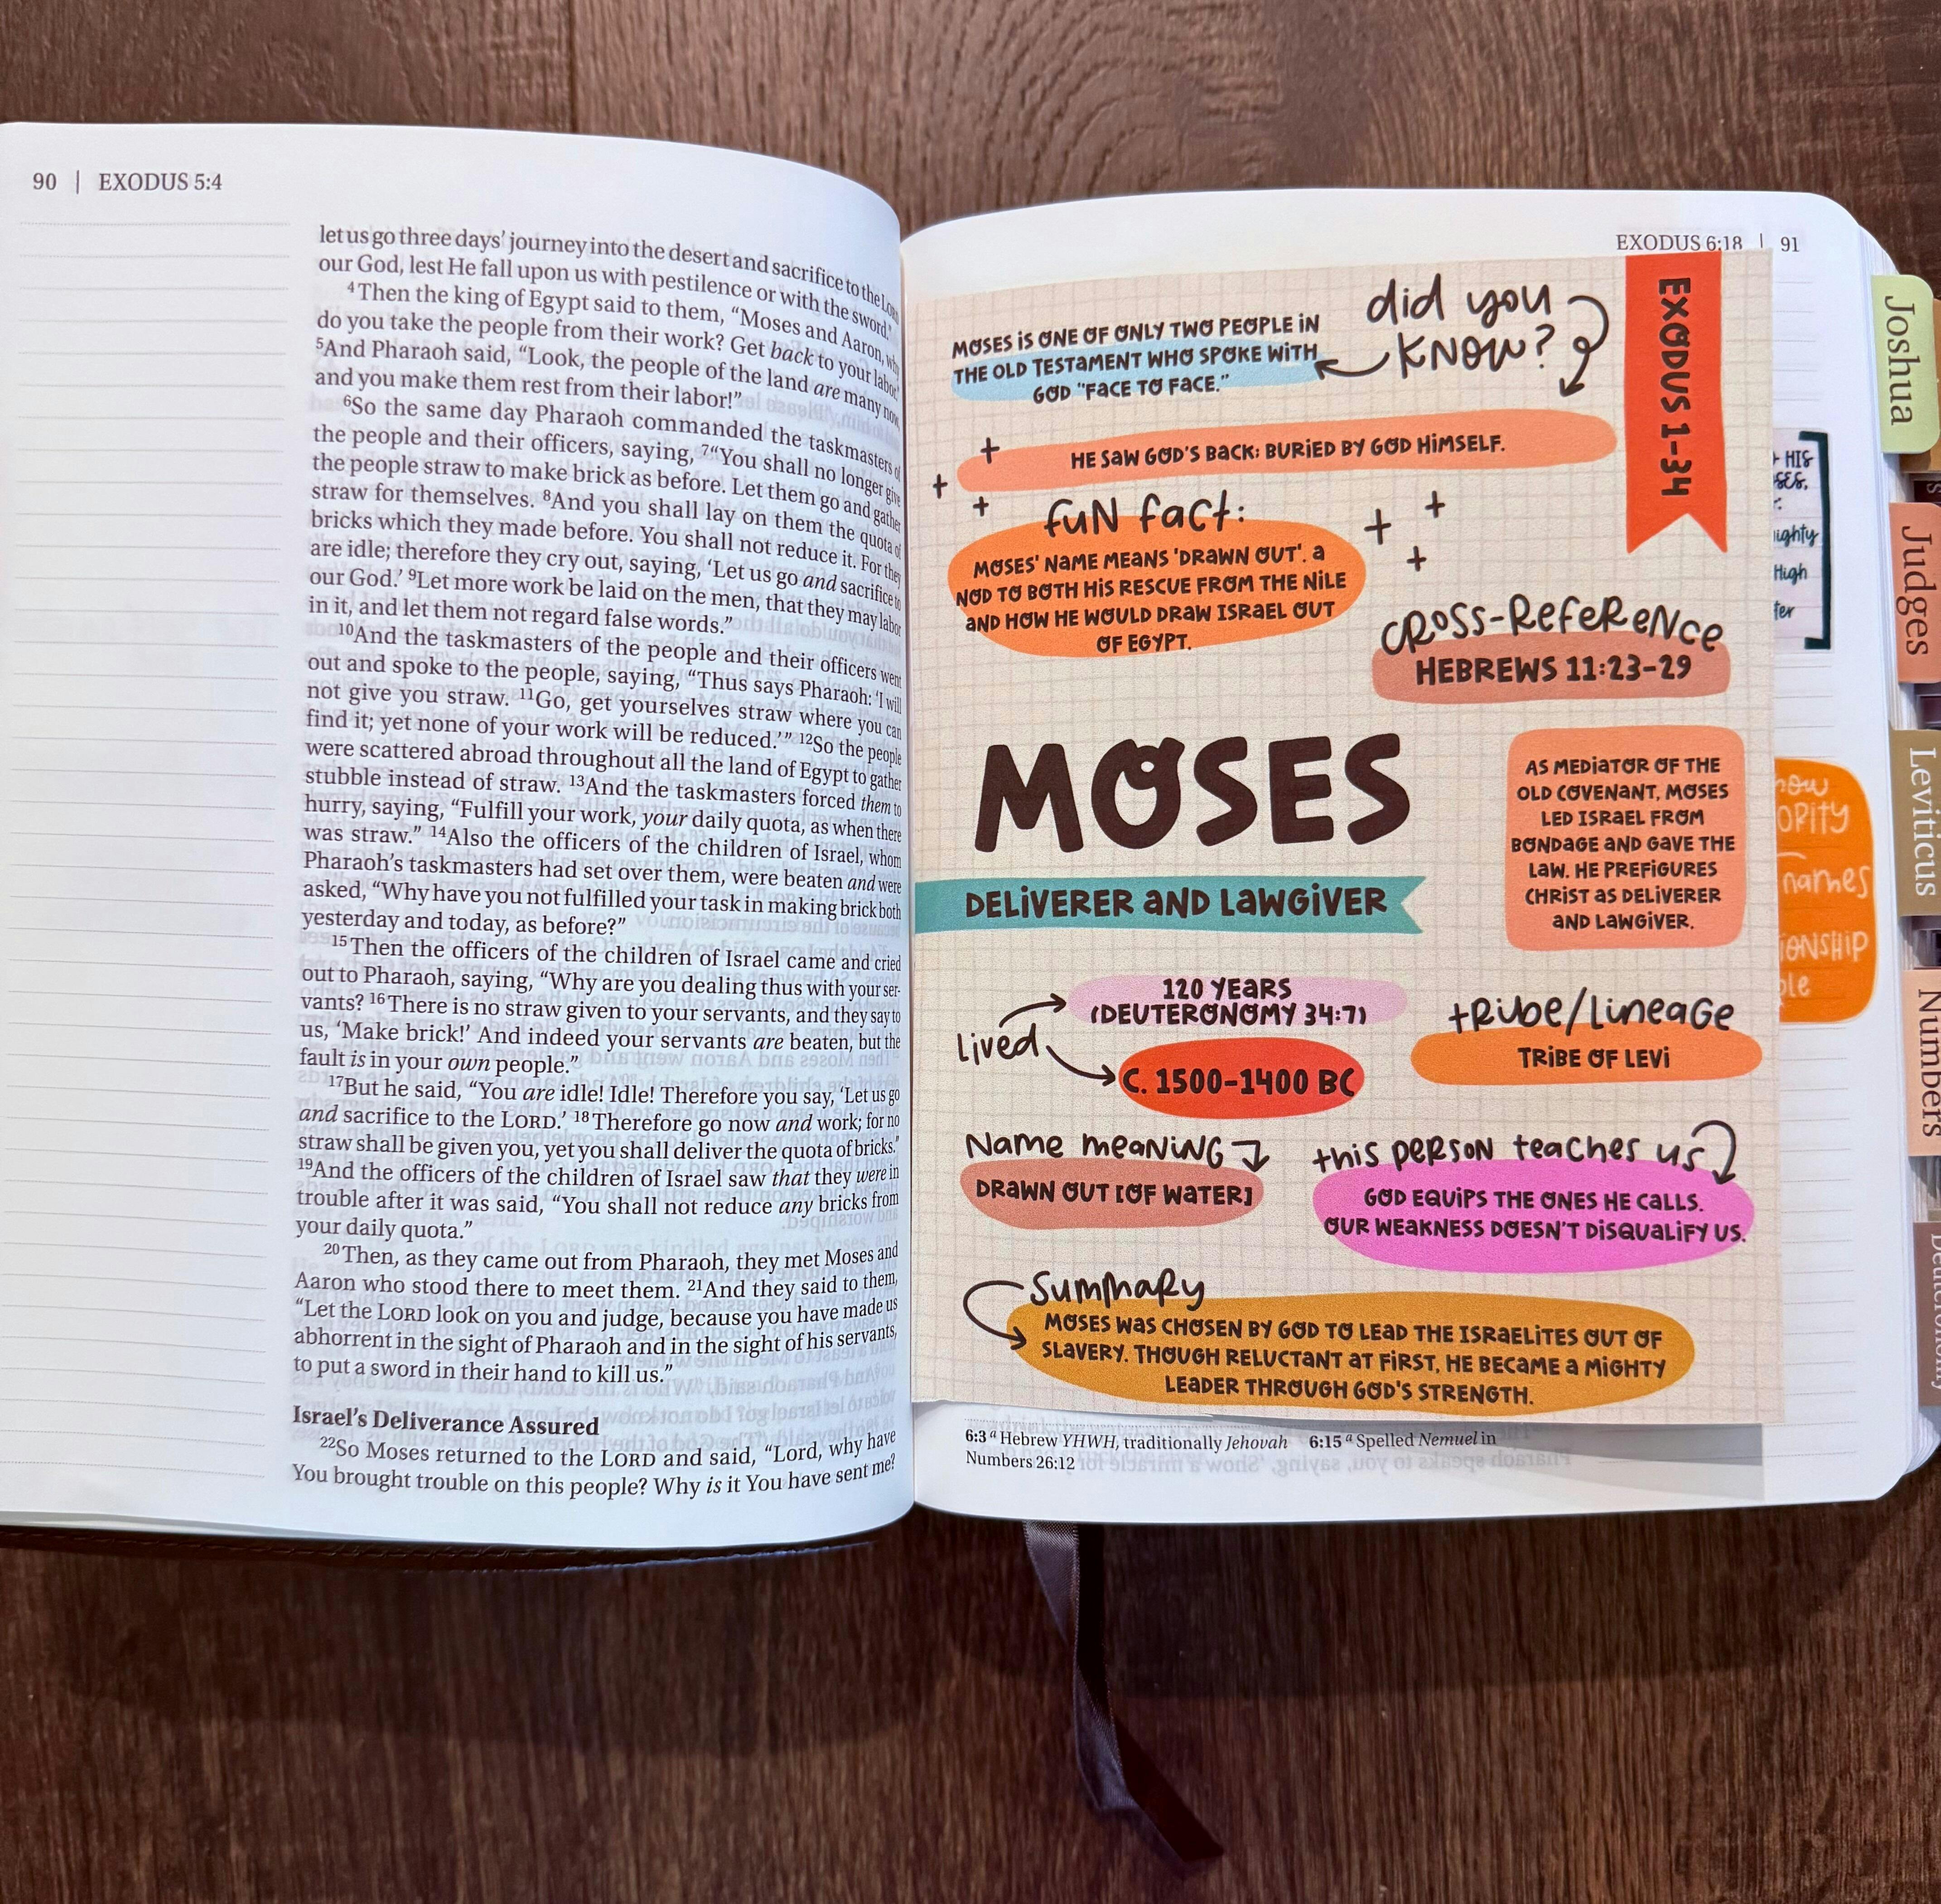 90 | EXODUS 5:4
let us go three days’ journey into the desert and sacrifice to the LORD
our God, lest He fall upon us with pestilence or with the sword.”
4Then the king of Egypt said to them, “Moses and Aaron, why
do you take the people from their work? Get back to your labor.”
5And Pharaoh said, “Look, the people of the land are many now,
and you make them rest from their labor!”
6So the same day Pharaoh commanded the taskmasters of
the people and their officers, saying, 7“You shall no longer give
the people straw to make brick as before. Let them go and gather
straw for themselves. 8And you shall lay on them the quota of
bricks which they made before. You shall not reduce it. For they
are idle; therefore they cry out, saying, ‘Let us go and sacrifice to
our God.’ 9Let more work be laid on the men, that they may labor
in it, and let them not regard false words.”
10And the taskmasters of the people and their officers went
out and spoke to the people, saying, “Thus says Pharaoh: ‘I will
not give you straw. 11Go, get yourselves straw where you can
find it; yet none of your work will be reduced.’” 12So the people
were scattered abroad throughout all the land of Egypt to gather
stubble instead of straw. 13And the taskmasters forced them to
hurry, saying, “Fulfill your work, your daily quota, as when there
was straw.” 14Also the officers of the children of Israel, whom
Pharaoh’s taskmasters had set over them, were beaten and were
asked, “Why have you not fulfilled your task in making brick both
yesterday and today, as before?”
15Then the officers of the children of Israel came and cried
out to Pharaoh, saying, “Why are you dealing thus with your ser-
vants? 16There is no straw given to your servants, and they say to
us, ‘Make brick!’ And indeed your servants are beaten, but the
fault is in your own people.”
17But he said, “You are idle! Idle! Therefore you say, ‘Let us go
and sacrifice to the LORD.’ 18Therefore go now and work; for no
straw shall be given you, yet you shall deliver the quota of bricks.”
19And the officers of the children of Israel saw that they were in
trouble after it was said, “You shall not reduce any bricks from
your daily quota.”
20Then, as they came out from Pharaoh, they met Moses and
Aaron who stood there to meet them. 21And they said to them,
“Let the LORD look on you and judge, because you have made us
abhorrent in the sight of Pharaoh and in the sight of his servants,
to put a sword in their hand to kill us.”
Israel’s Deliverance Assured
22So Moses returned to the LORD and said, “Lord, why have
You brought trouble on this people? Why is it You have sent me?
EXODUS 6:18 | 91
did you
KNOW?
MOSES IS ONE OF ONLY TWO PEOPLE IN
THE OLD TESTAMENT WHO SPOKE WITH
GOD "FACE TO FACE."
EXODUS 1-34
HE SAW GOD'S BACK; BURIED BY GOD HIMSELF.
fuN fact:
MOSES' NAME MEANS 'DRAWN OUT'. A
NOD TO BOTH HIS RESCUE FROM THE NILE
AND HOW HE WOULD DRAW ISRAEL OUT
OF EGYPT.
CROSS-RefeReNce
HEBREWS 11:23-29
MOSES
DELIVERER AND LAWGIVER
AS MEDIATOR OF THE
OLD COVENANT, MOSES
LED ISRAEL FROM
BONDAGE AND GAVE THE
LAW. HE PREFIGURES
CHRIST AS DELIVERER
AND LAWGIVER.
Lived
120 YEARS
(DEUTERONOMY 34:7)
C. 1500-1400 BC
tRibe/LiNeaGe
TRIBE OF LEVI
Name meaNiNG
DRAWN OUT [OF WATER]
this peRSoN teaches us
GOD EQUIPS THE ONES HE CALLS.
OUR WEAKNESS DOESN'T DISQUALIFY US.
SummaRy
MOSES WAS CHOSEN BY GOD TO LEAD THE ISRAELITES OUT OF
SLAVERY. THOUGH RELUCTANT AT FIRST, HE BECAME A MIGHTY
LEADER THROUGH GOD'S STRENGTH.
6:3 a Hebrew YHWH, traditionally Jehovah 6:15 a Spelled Nemuel in
Numbers 26:12
HIS
High
names
Joshua
Judges
Leviticus
Numbers
Deuteronomy